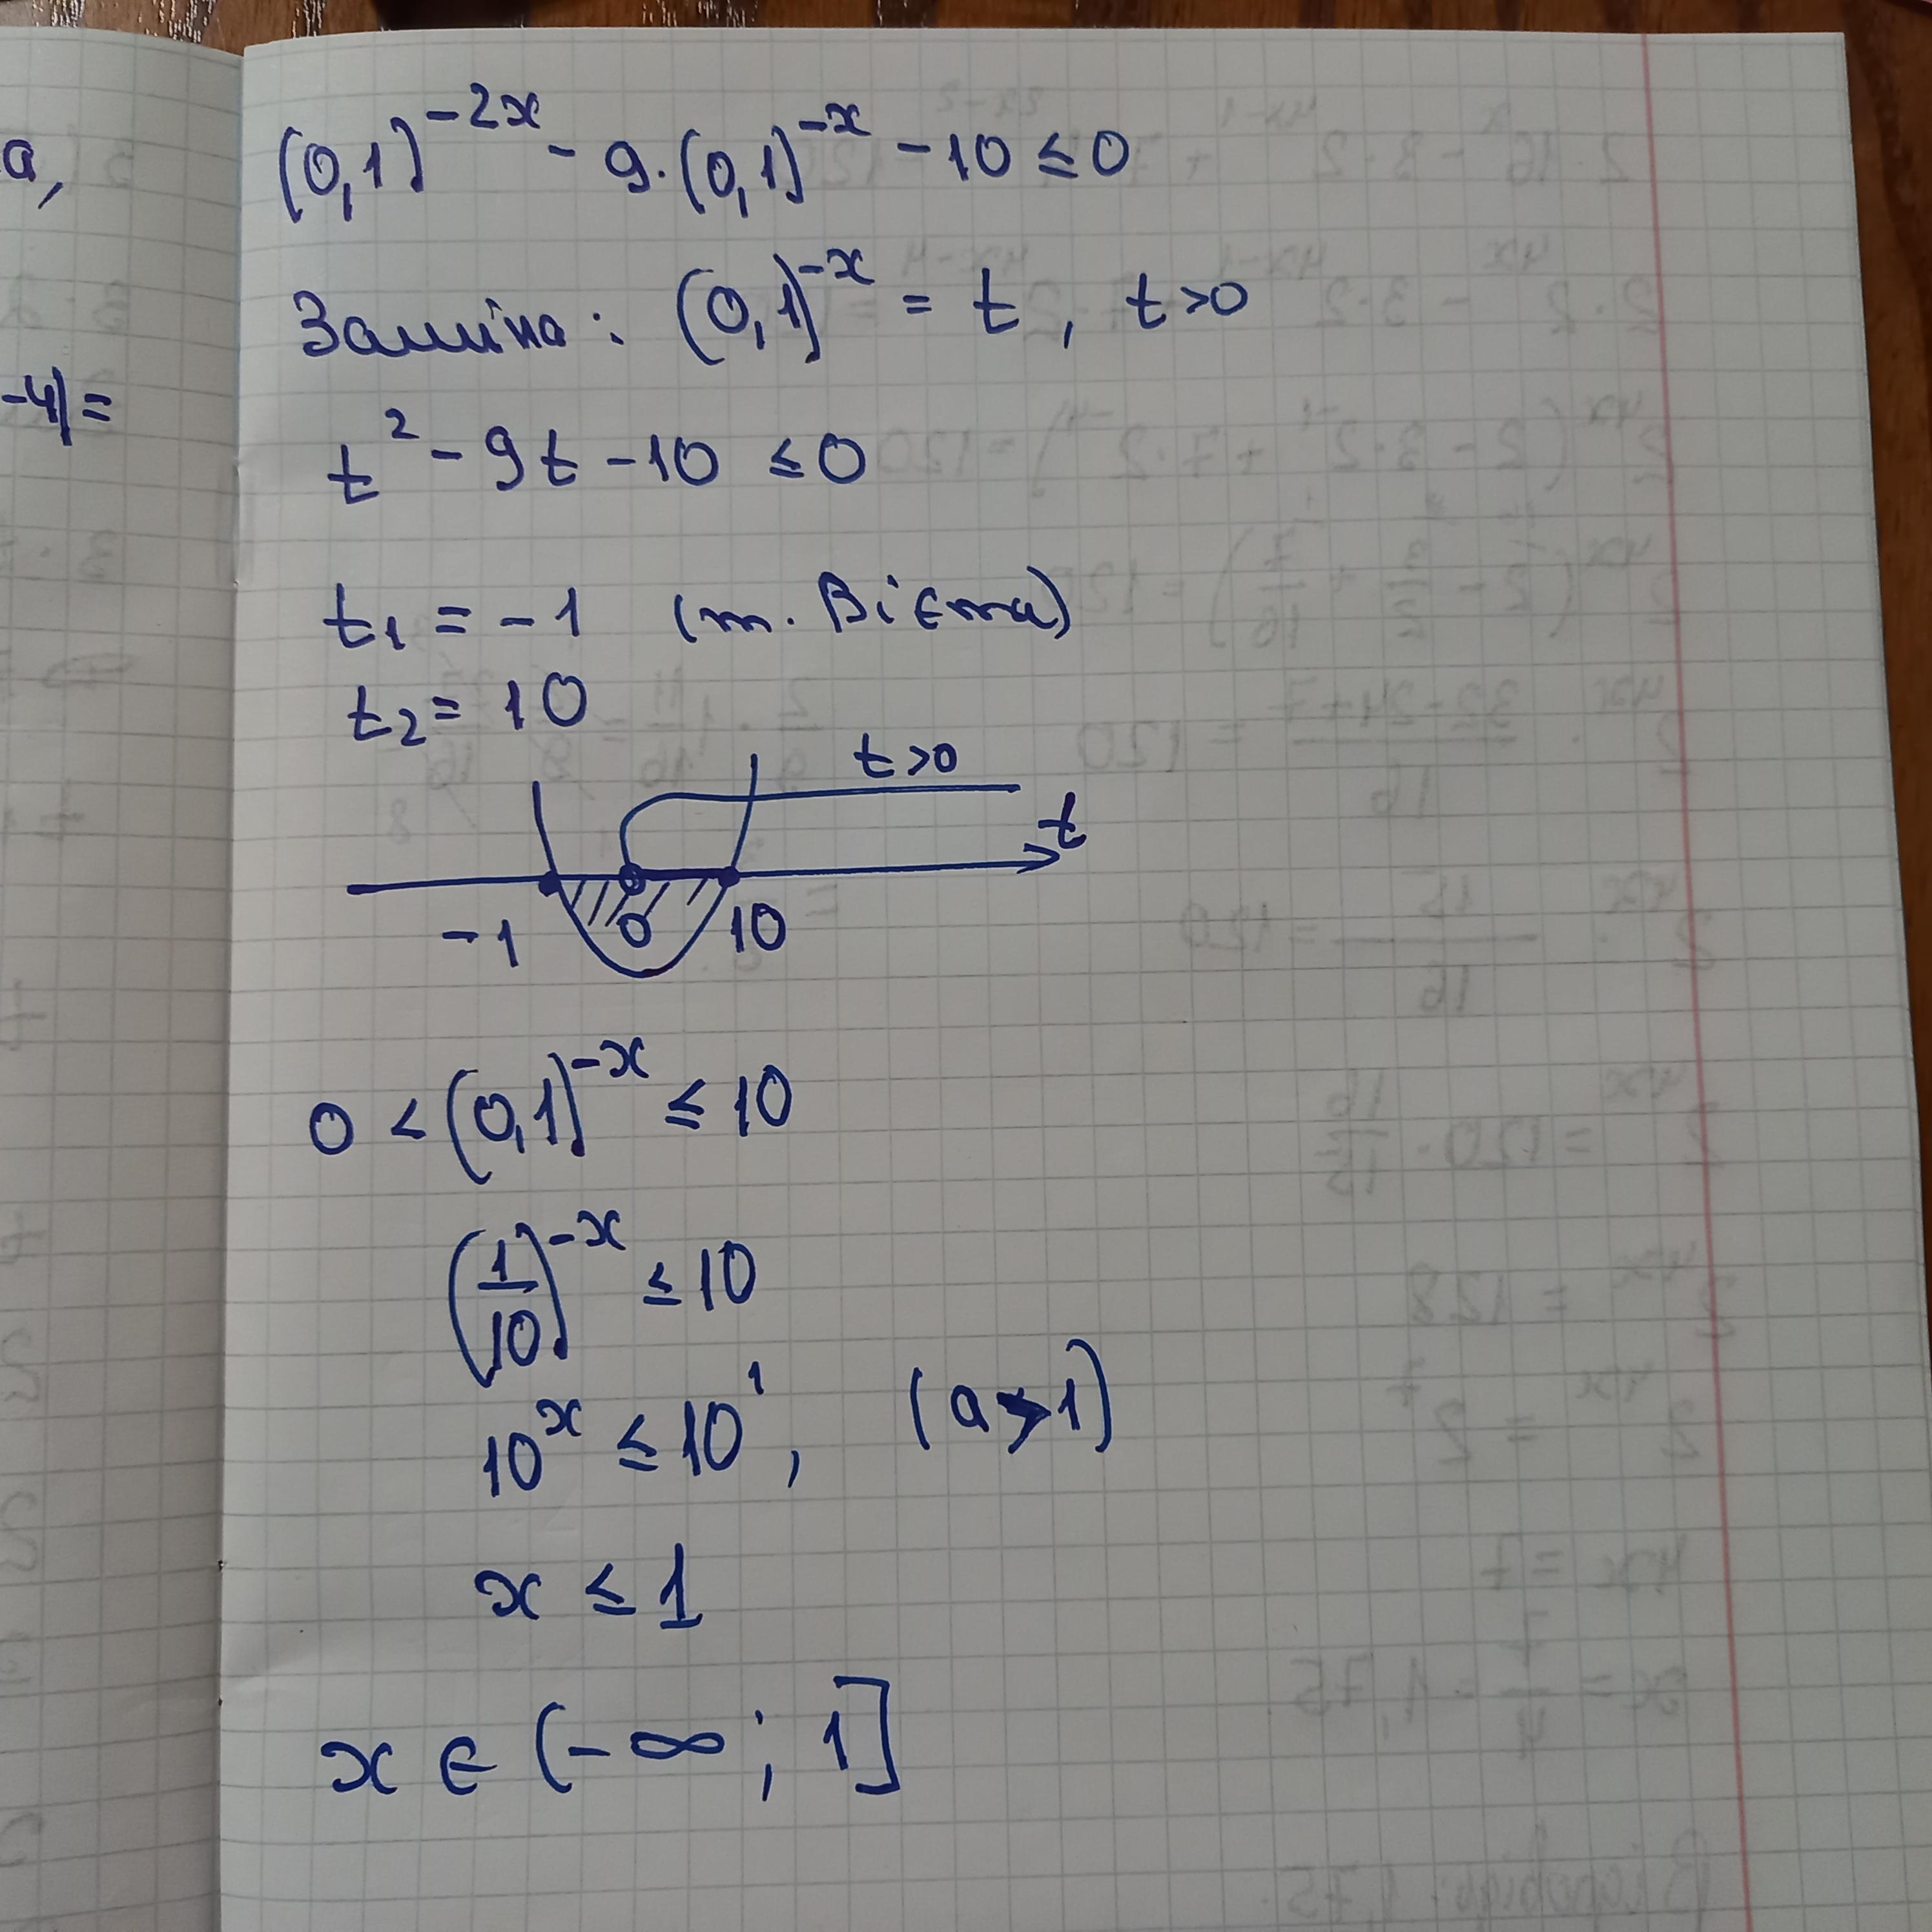 а,
-4|=
(0,1)^{-2x} - 9·(0,1)^{-x} - 10 ≤ 0
Заміна: (0,1)^{-x} = t, t>0
t² - 9t - 10 ≤ 0
t₁ = -1 (т. Вієта)
t₂ = 10
t>0
t
-1 0 10
0 < (0,1)^{-x} ≤ 10
(1/10)^{-x} ≤ 10
10^x ≤ 10^1, (a>1)
x ≤ 1
x ∈ (-∞; 1]